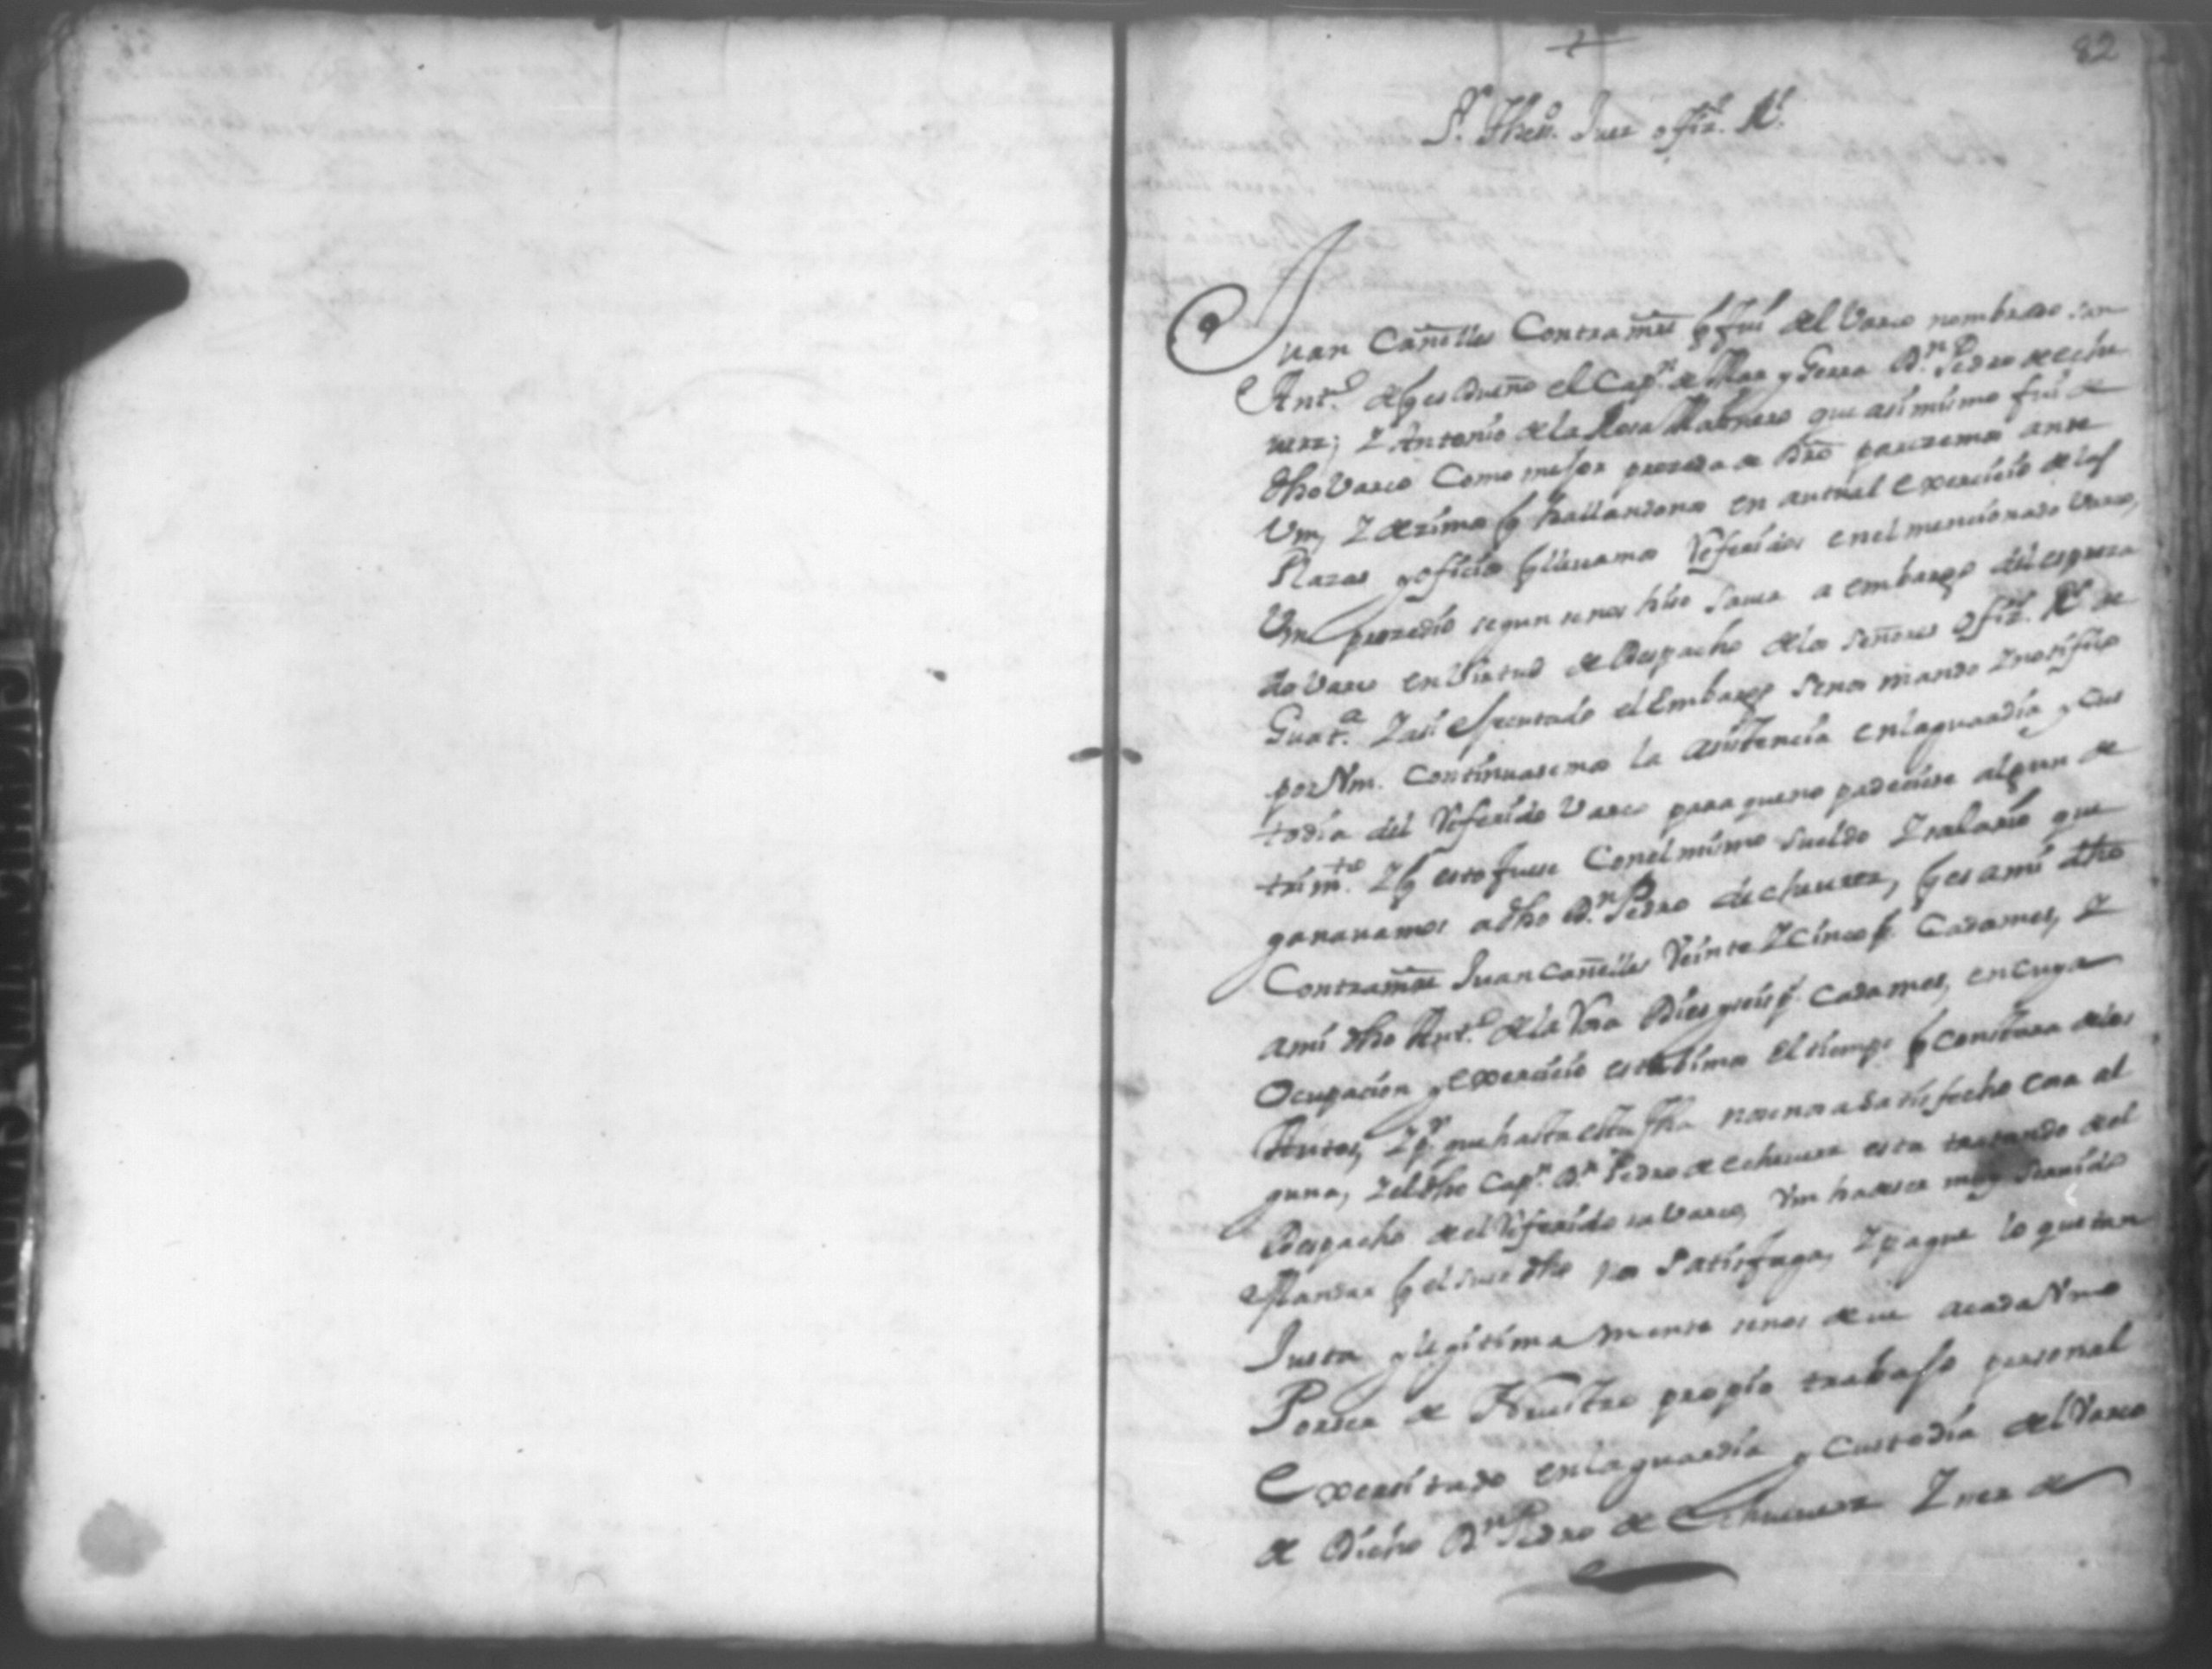 82
Sr. Theste. Juez ofiz. Rl.
Juan Cañelles Contramre q fui del Varco nombrado San
Anto. de q es dueño el Capn. de Mar y Gerra Dn. Pedro de eche
verz; Z Antonio de la Rosa Marinero que asi mismo fui de
dho Varco Como mejor proceda de dro parezemos ante
Vm, Z dezimos q hallandonos en autual exercicio de las
Plazas y oficios q lleuamos Referidos en el mencionado Varco,
Vm prozedio segun se nos hiso sauer a embargo del espresa
do Varco en Virtud de Despacho de los Señores ofiz. Rs. de
Guata. Z asi Ejecutado el Embargo se nos mando Z notifico
por Vm. Continuasemos la asistencia en la guardia y Cus
todia del Referido Varco para que no padeciese algun de
trimto. Z q esto fuese Con el mismo sueldo Z salario que
ganauamos a dho Dn. Pedro de echeuerz, q es a mi dho
Contramre Juan Cañelles Veinte Z Cinco ps. Cada mes, Z
a mi dho Anto. de la Rosa Dies y seis ps. Cada mes, en cuya
Ocupacion y exercicio estubimos El tiempo q Constara de los
Autos, Z pr. que hasta esta fha no se nos a satisfecho Cosa al
guna, Z el dho Capn. Dn. Pedro de echeuerz esta tratando del
Despacho de el Referido su Varco, Vm ha de ser muy Seruido
Mandar q el suso dho nos Satisfaga, Z pague lo que tan
Justa y legitima mente se nos deue a cada Vno
Por ser de Nuestro propio trabajo personal
Exersitado en la guardia y Custodia del Varco
de Dicho Dn. Pedro de Echeuerz Z ser de